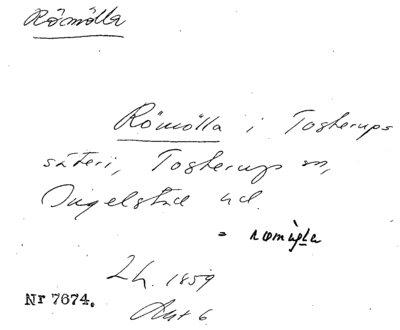 Römölla
Römölla i Tosterups
säteri, Tosterups sn,
Ingelstad hd.
= romåla
Lh. 1859
Nr 7674.